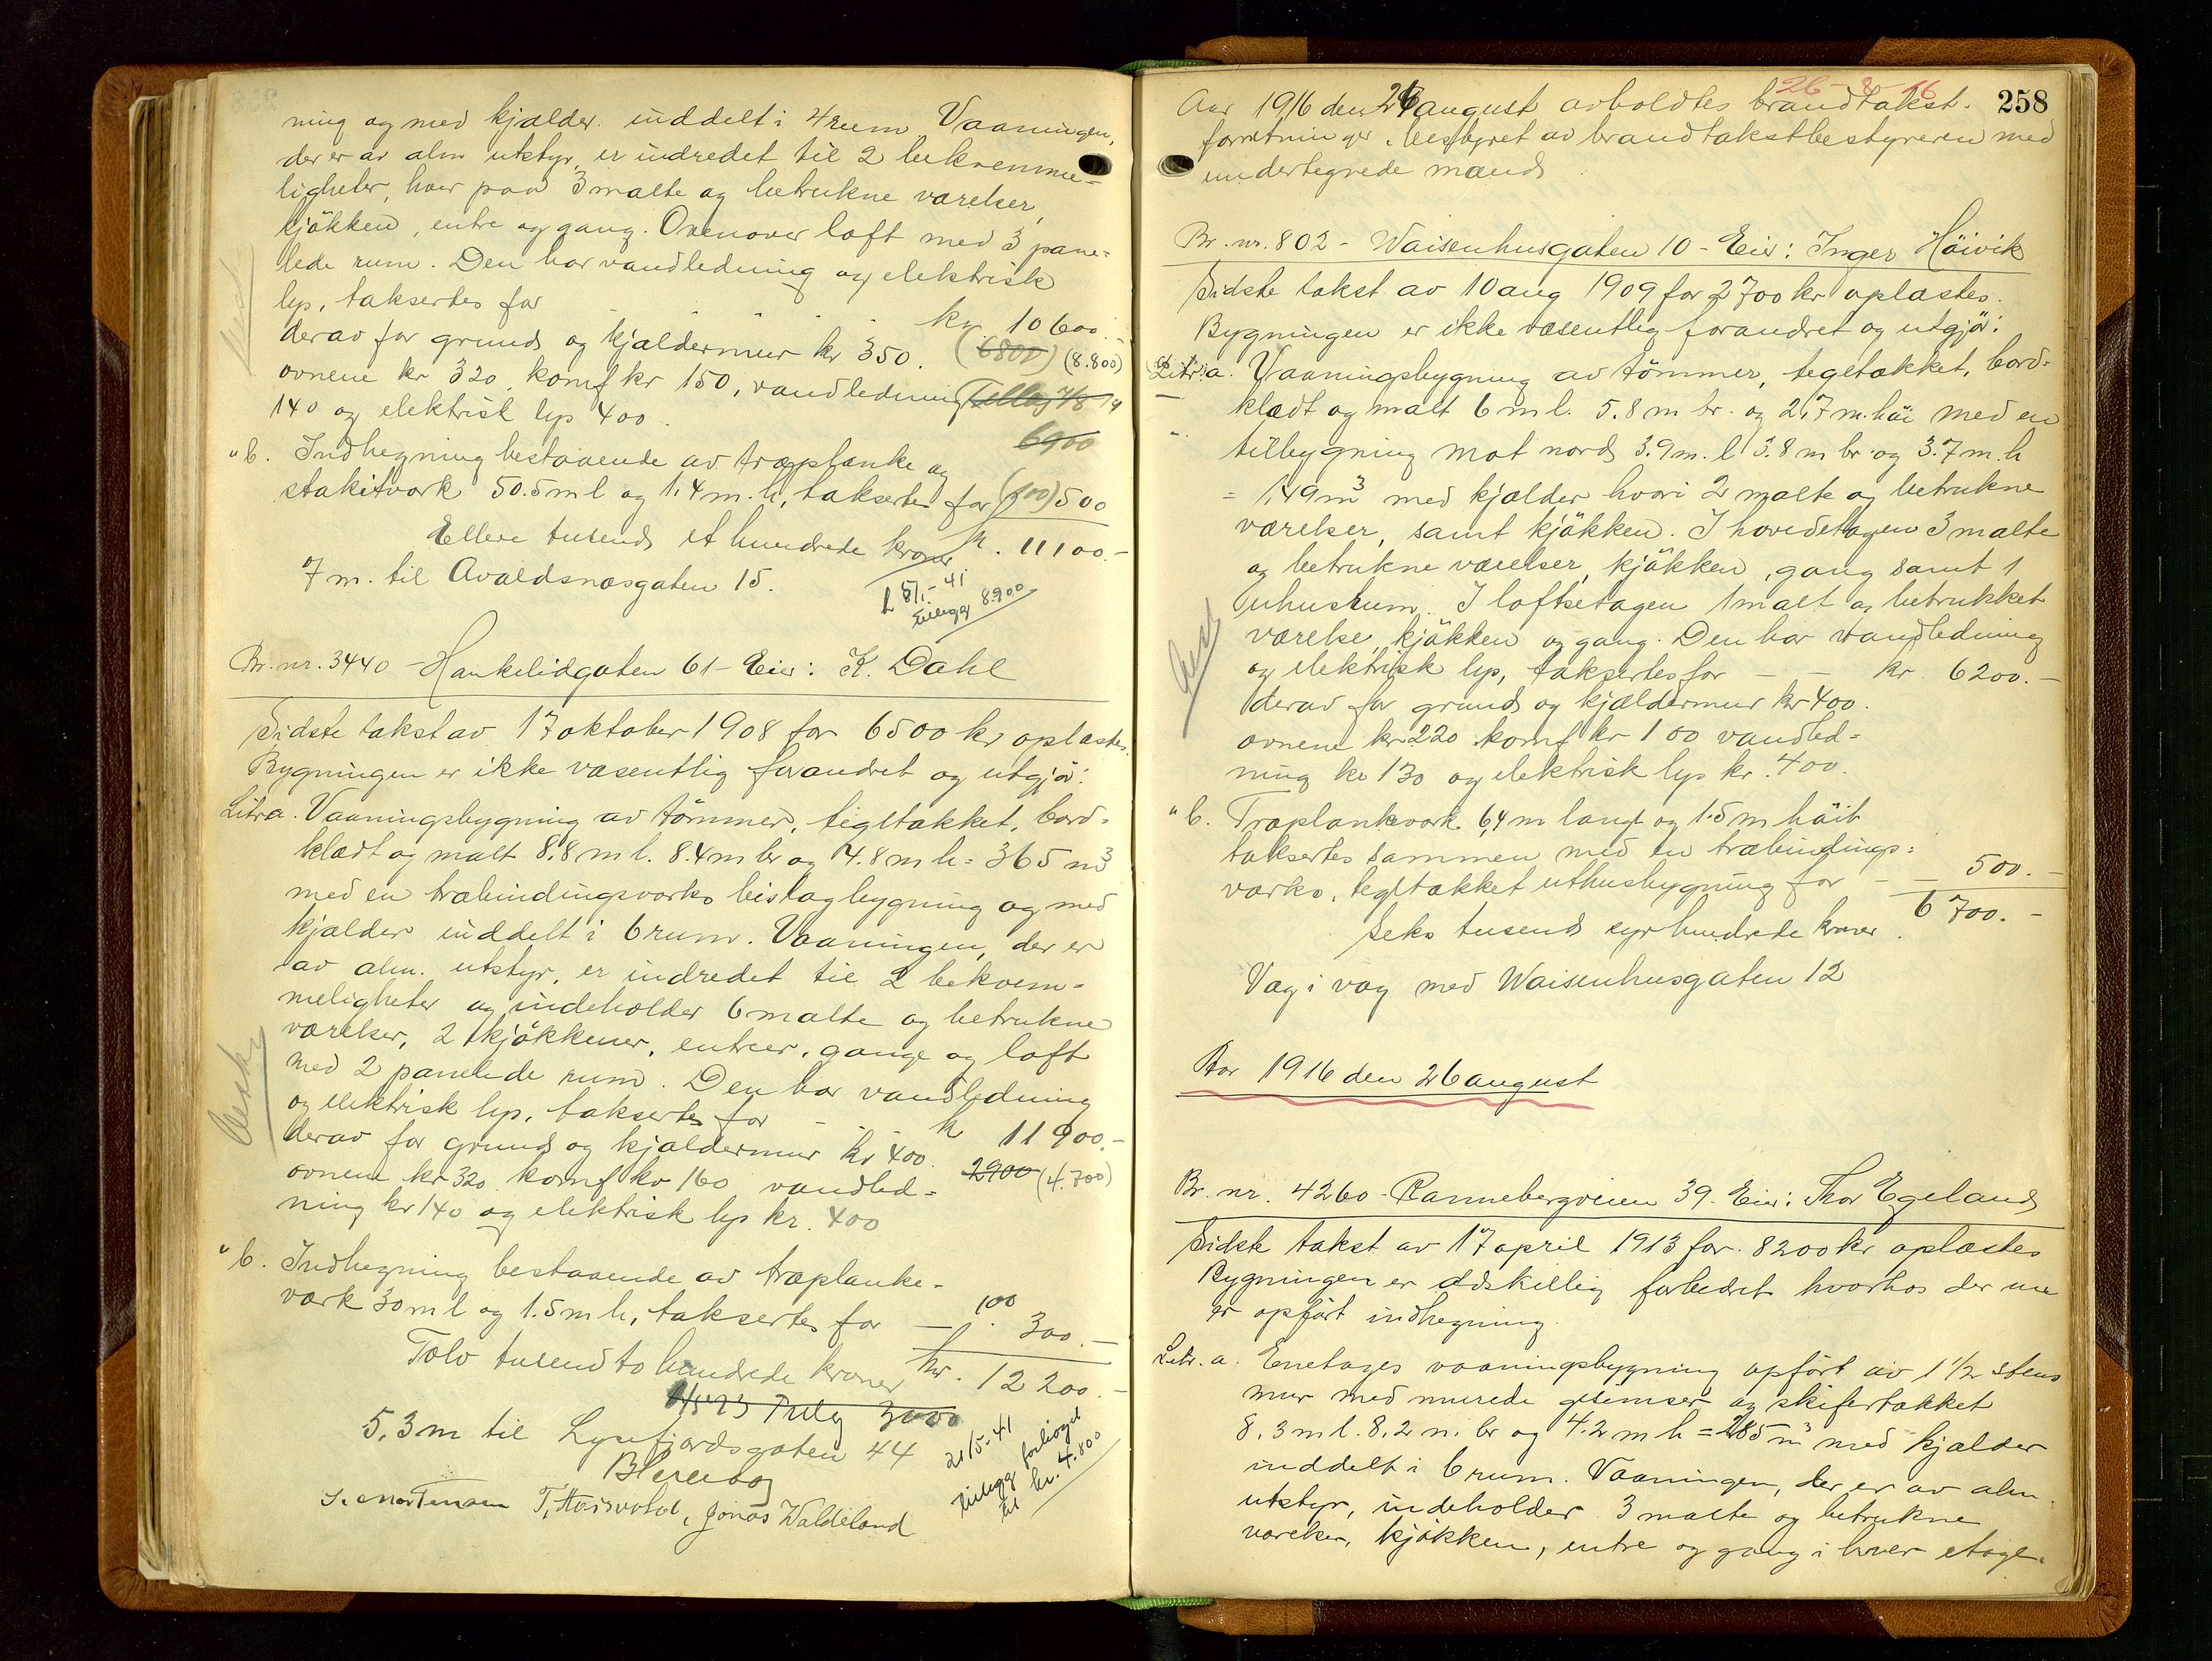 ning og med kjælder inddelt i 4 rum. Vaaningen,
der er av alm utstyr, er indredet til 2 bekvemme-
ligheter, hver paa 3 malte og betrukne værelser,
kjøkken, entre og gang. Ovenover loft med 3 pane-
lede rum. Den har vandledning og elektrisk
lys, taksertes for - - - kr 10600.-
derav for grund og kjældermur kr 350. (6800) (8.800)
ovnene kr 320, komf kr 150, vandledning
140 og elektrisk lys 400.
6900
" b. Indhegning bestaaende av træplanke og
stakitverk 50.5 m l og 1.4 m. h, taksertes for (100) 500
Elleve tusend et hundrede kroner kr. 11100.-
7 m. til Avaldsnæsgaten 15.
8/1-41
tillegg 8900
Br. nr. 3440 - Haukelidgaten 61 - Eier: K. Dahl
Sidste takst av 17 oktober 1908 for 6500 kr oplæstes.
Bygningen er ikke væsentlig forandret og utgjør:
Litr a. Vaaningsbygning av tømmer, tegltækket, bord-
klædt og malt 8.8 m l. 8.4 m br og 4.8 m h = 365 m³
med en træbindingsverks bislagbygning og med
kjælder inddelt i 6 rum. Vaaningen, der er
av alm. utstyr, er indredet til 2 bekvem-
meligheter og indeholder 6 malte og betrukne
værelser, 2 kjøkkener, entreer, gange og loft
med 2 panelede rum. Den har vandledning
og elektrisk lys, taksertes for - - - kr 11900.-
derav for grund og kjældermur kr 400.
ovnene kr 320 komf kr 160 vandled- 2900 (4.700)
ning kr 140 og elektrisk lys kr. 400
" b. Indhegning bestaaende av træplanke-
verk 30 m l og 1.5 m h, taksertes for - 100 300.-
Tolv tusend to hundrede kroner kr. 12200.-
3000
5.3 m til Lysefjordsgaten 44
21/5-41
tillegg forhøiget
til kr. 4.800
S. Mortensen T. , Jonas Waldeland
26-8-16
258
Aar 1916 den 26 august avholdtes brandtakst-
forretninger bestyret av brandtakstbestyreren med
undertegnede mænd
Br. nr. 802 - Waisenhusgaten 10 - Eier: Inger Høivik
Sidste takst av 10 aug 1909 for 2700 kr oplæstes.
Bygningen er ikke væsentlig forandret og utgjør:
Litr. a. Vaaningsbygning av tømmer, tegltækket, bord-
klædt og malt 6 m l. 5.8 m br. og 2.7 m. høi med en
tilbygning mot nord 3.9 m. l 3.8 m br. og 3.7 m. h
= 149 m³ med kjælder hvori 2 malte og betrukne
værelser, samt kjøkken. I hovedetagen 3 malte
og betrukne værelser, kjøkken, gang samt 1
uhusrum. I loftsetagen 1 malt og betrukket
værelse, kjøkken og gang. Den har vandledning
og elektrisk lys, taksertes for - - kr. 6200.-
derav for grund og kjældermur kr 400.
ovnene kr 220 komf kr 100 vandled-
ning kr 130 og elektrisk lys kr. 400.
" b. Træplankeverk 6,4 m langt og 1.5 m høit
taksertes sammen med en træbindings-
verks, tegltækket uthusbygning for - - 500.-
6700.-
Seks tusend syv hundrede kroner.
Væg i væg med Waisenhusgaten 12
Aar 1916 den 26 august
Br. nr. 4260 - Rannebergveien 39. Eier: Thor Egeland
Sidste takst av 17 april 1913 for 8200 kr oplæstes
Bygningen er adskillig forbedret hvorhos der nu
er opført indhegning.
Litr. a. Enetages vaaningsbygning opført av 1 1/2 stens
mur med murede gesimser og skifertækket
8.3 m l. 8.2 m. br og 4.2 m h = 285 m³ med kjælder
inddelt i 6 rum. Vaaningen, der er av alm.
utstyr, indeholder 3 malte og betrukne
værelser, kjøkken, entre og gang i hver etage.